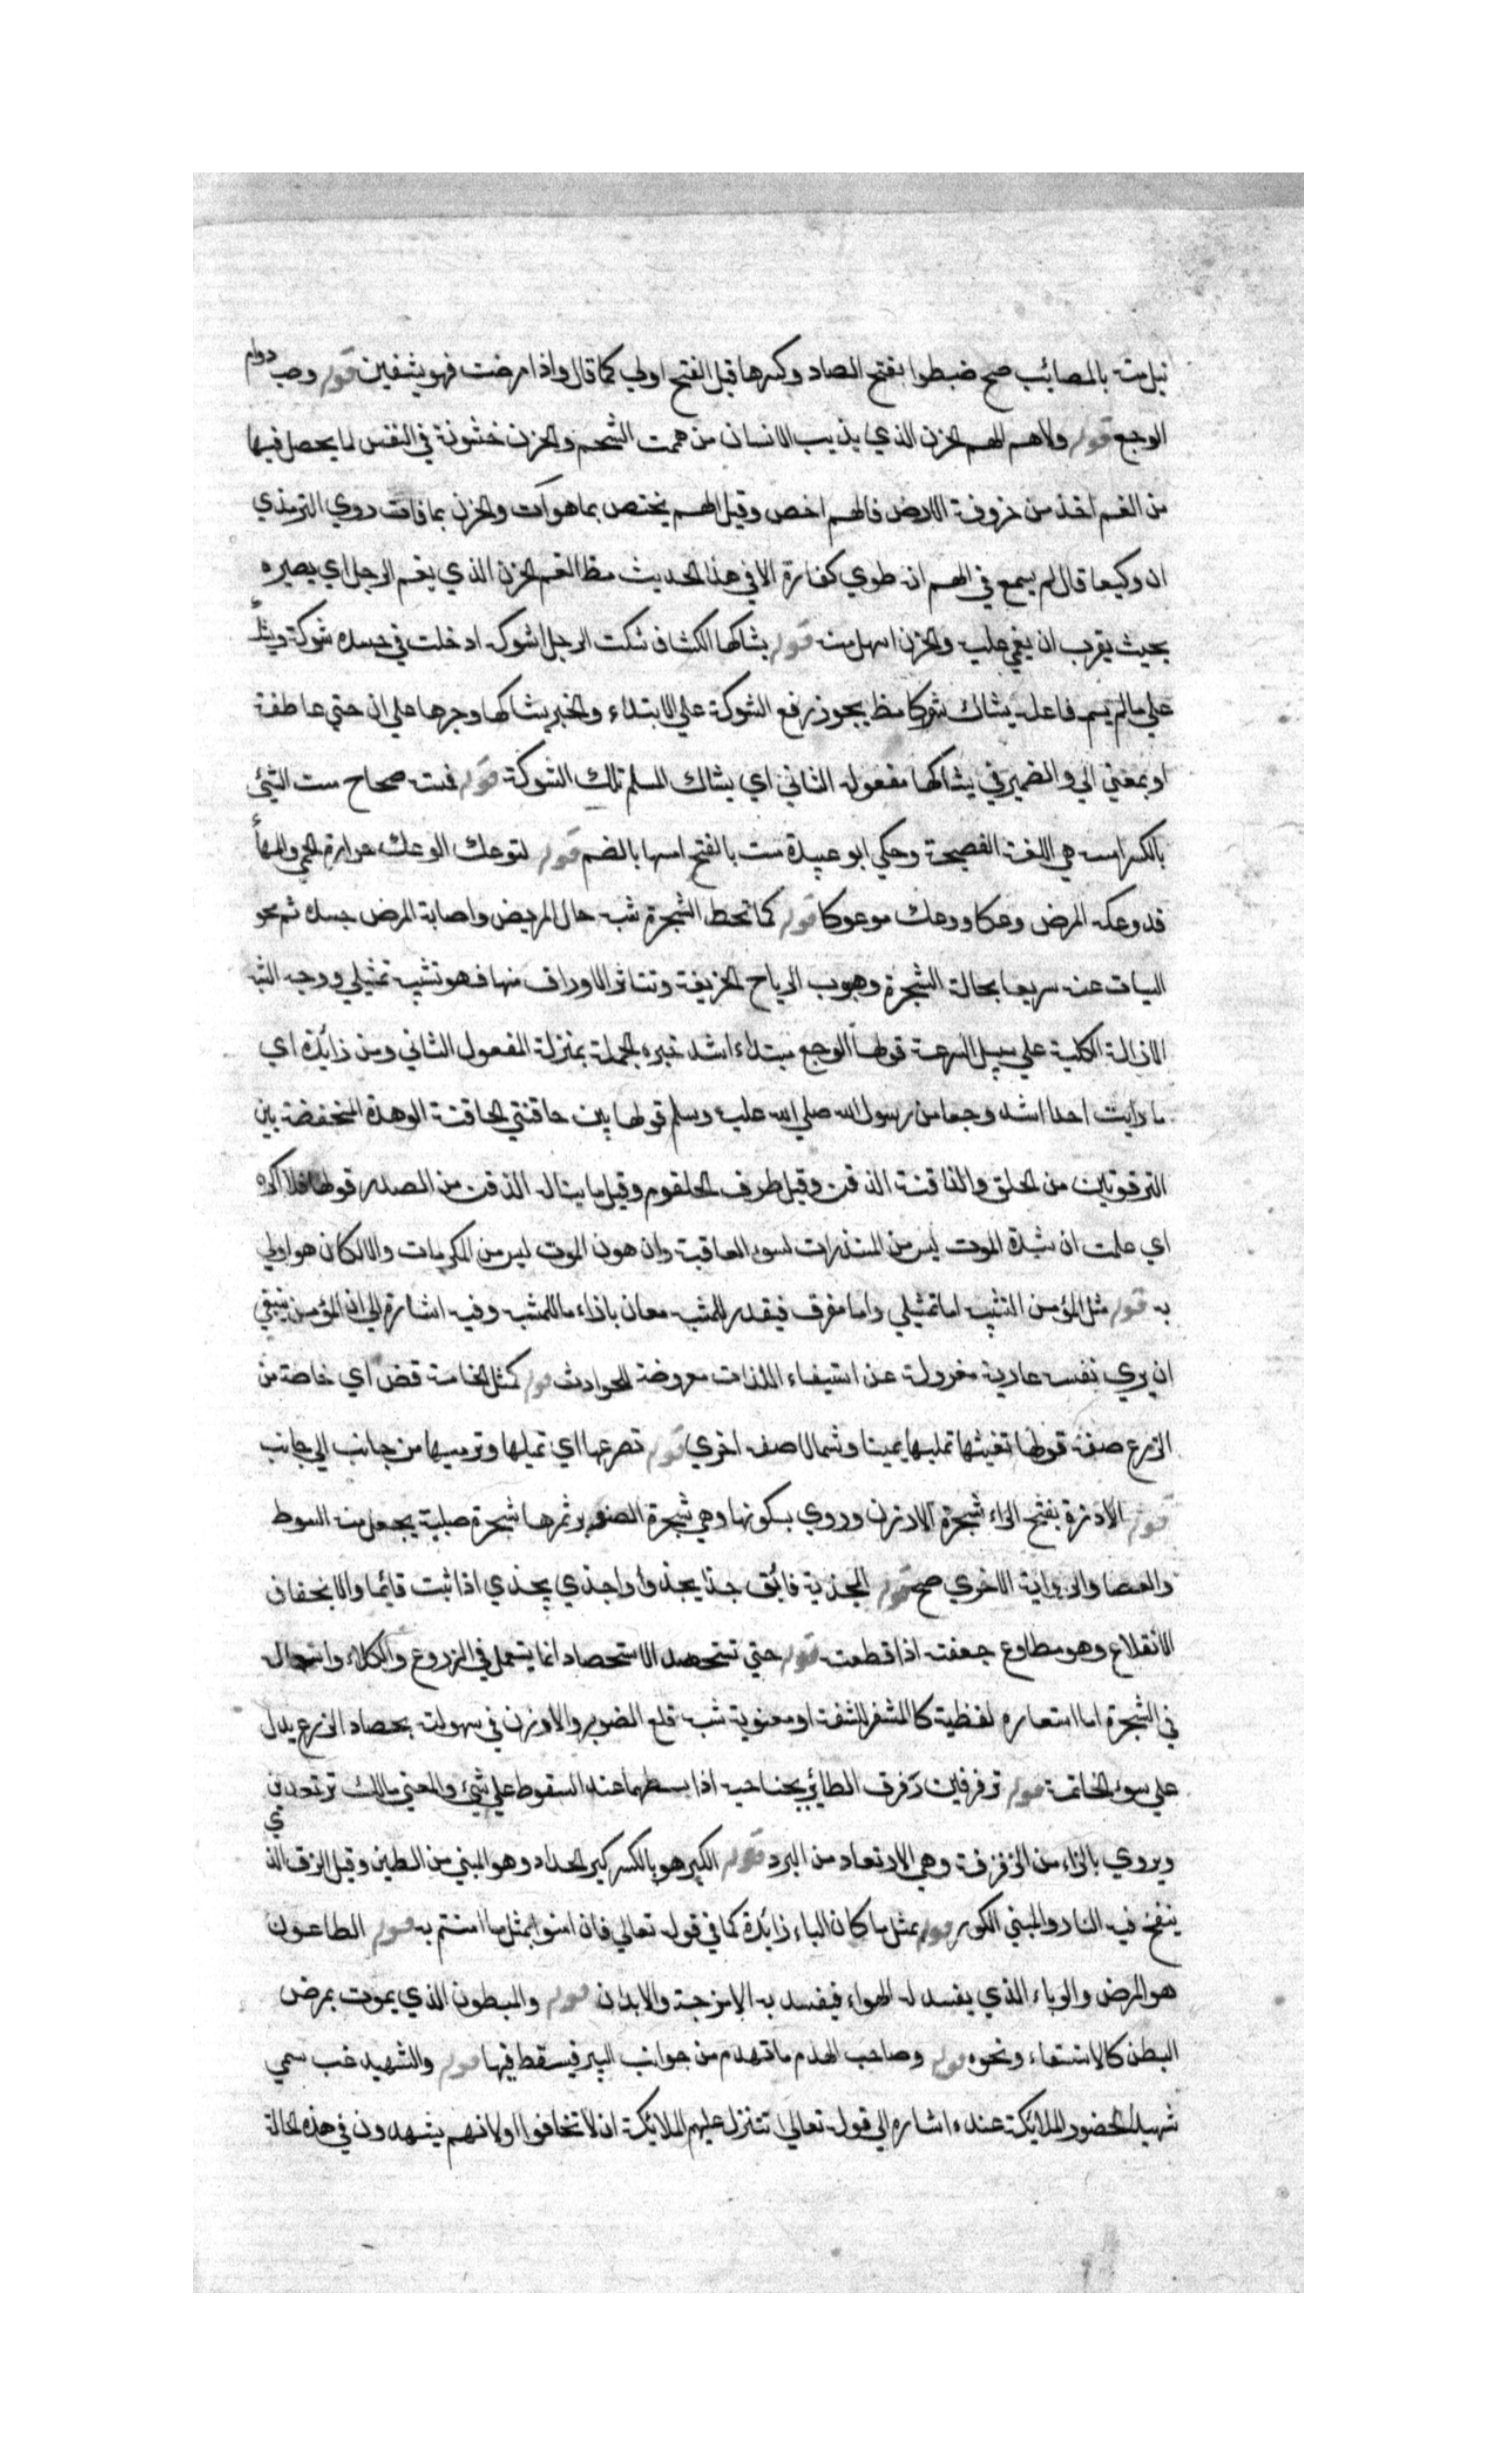 نيل منه بالمصائب صح ضبطوا بفتح الصاد وكسرها قيل الفتح اولي كما قال واذا مرضت فهو يشفين قوله وصب دوام
الوجع قوله ولا هم الهم الحزن الذي يذيب الانسان من هممت الشحم والحزن خشونة في النفس لما يحصل فيها
من الغم اخذ من حزونة الارض فالهم اخص وقيل الهم يختص بما هو آت والحزن بما فات روي الترمذي
ان وكيعا قال لم يسمع في الهم انه طوي كفارة الا في هذا الحديث مظ الغم الحزن الذي يغم الرجل اي يصيره
بحيث يقرب ان يغمي عليه والحزن اسهل منه قوله يشاكها الكشاف شكت الرجل اشوكه ادخلت في جسده شوكة وشيك
علي ما لم يسم فاعله يشاك شوكا مظ يجوز رفع الشوكة علي الابتداء والخبر يشاكها وجرها علي ان حتي عاطفة
او بمعني الي والضمير في يشاكها مفعوله الثاني اي يشاك المسلم تلك الشوكة قوله فمسته صحاح مست الشئ
بالكسر امسه هي اللغة الفصيحة وحكي ابو عبيدة مست بالفتح امسها بالضم قوله لتوعك الوعك حرارة الحمي والمها
قد وعكه المرض وعكا ووعك موعوكا قوله كما تحط الشجرة شبه حال المريض واصابة المرض جسده ثم محو
السيات عنه سريعا بحالة الشجرة وهبوب الرياح الخريفة وتناثر الاوراق منها فهو تشبيه تمثيلي ووجه الشبه
الازالة الكلية علي سبيل السرعة قولها الوجع مبتداء اشد خبره الجملة بمنزلة المفعول الثاني ومن زائدة اي
ما رايت احدا اشد وجعا من رسول الله صلي الله عليه وسلم قولها بين حاقنتي الحاقنة الوهدة المنخفضة بين
الترقوتين من الحلق والذاقنة الذقن وقيل طرف الحلقوم وقيل ما ينال الذقن من الصدر قولها فلا اكره
اي علمت ان شدة الموت ليس من المنذرات لسوء العاقبة وان هون الموت ليس من المكرمات والا لكان هو اولي
به قوله مثل المؤمن التشبيه اما تمثيلي واما مفرق فيقدر للمشبه معان بازاء ما للمشبه وفيه اشارة الي ان المؤمن ينبغي
ان يري نفسه عارية معزولة عن استيفاء اللذات معروضة للحوادث قوله كمثل الخامة قض اي خاصة من
الزرع صفة قولها تفيئها تميلها يمينا وشمالا صفة اخري قوله تصرعها اي تميلها وترميها من جانب الي جانب
قوله الارزة بفتح الراء شجرة الارزن وروي بسكونها وهي شجرة الصنوبر وثمرها شجرة صلبة يجعل منه السوط
والعصا والرواية الاخري صح قوله المجذية فائق جذا يجذو واجذي يجذي اذا ثبت قائما والانجعاف
الانقلاع وهو مطاوع جعفته اذا قطعته قوله حتي تستحصد الاستحصاد انما يستعمل في الزروع والكلاء واستعماله
في الشجرة اما استعاره لفظية كالمشفر للشفة او معنوية شبه قلع الصنوبر والارزن في سهولته بحصاد الزرع يدل
علي سوء الخاتمة قوله ترفرفين رفرف الطائر بجناحيه اذا بسطهما عند السقوط علي شئ والمعني مالك ترتعدين
ويروي بالزاء من الزفزفة وهي الارتعاد من البرد قوله الكير هو بالكسر كير الحداد وهو المبني من الطين وقيل الزق الذي
ينفخ فيه النار والمبني الكور قوله بمثل ما كان الباء زائدة كما في قوله تعالي فان امنوا بمثل ما امنتم به قوله الطاعون
هو المرض والوباء الذي يفسد له الهواء فيفسد به الامزجة والابدان قوله والمبطون الذي يموت بمرض
البطن كالاستسقاء ونحوه قوله وصاحب الهدم ما تهدم من جوانب البير فيسقط فيها قوله والشهيد غب سمي
شهيدا لحضور الملائكة عنده اشاره الي قوله تعالي تتنزل عليهم الملائكة ان لا تخافوا او لانهم يشهدون في هذه الحالة